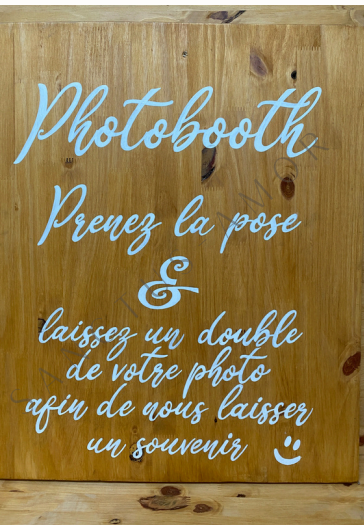 Photobooth
Prenez la pose
&
laissez un double
de votre photo
afin de nous laisser
un souvenir